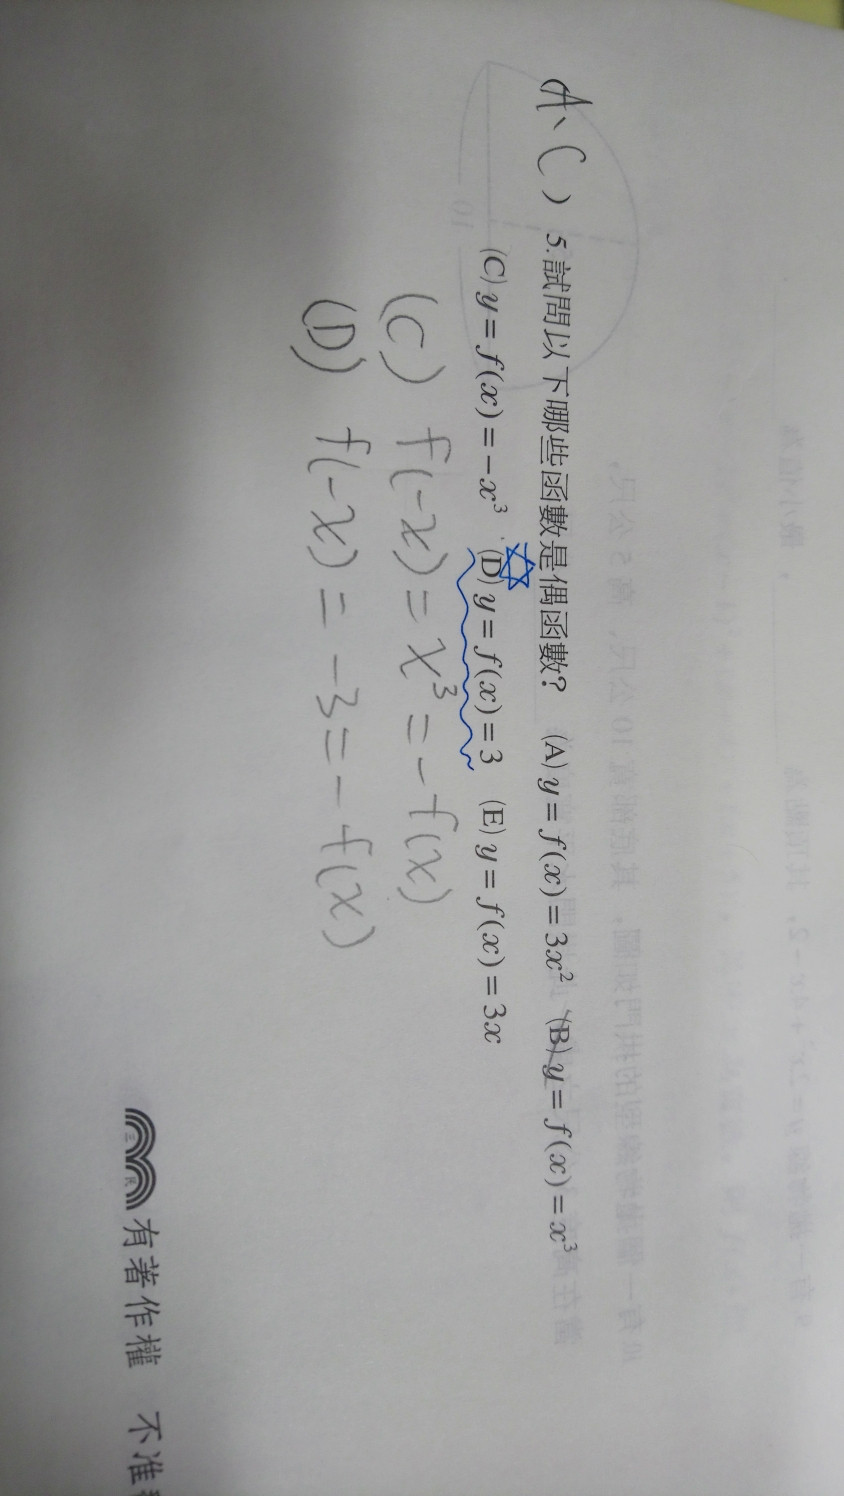 (A、C) 5.試問以下哪些函數是偶函數? (A) y = f(x) = 3x² (B) y = f(x) = x³
(C) y = f(x) = −x³ (D) y = f(x) = 3 (E) y = f(x) = 3x
(C) f(−x) = x³ = −f(x)
(D) f(−x) = −3 = −f(x)
三民 有著作權 不准